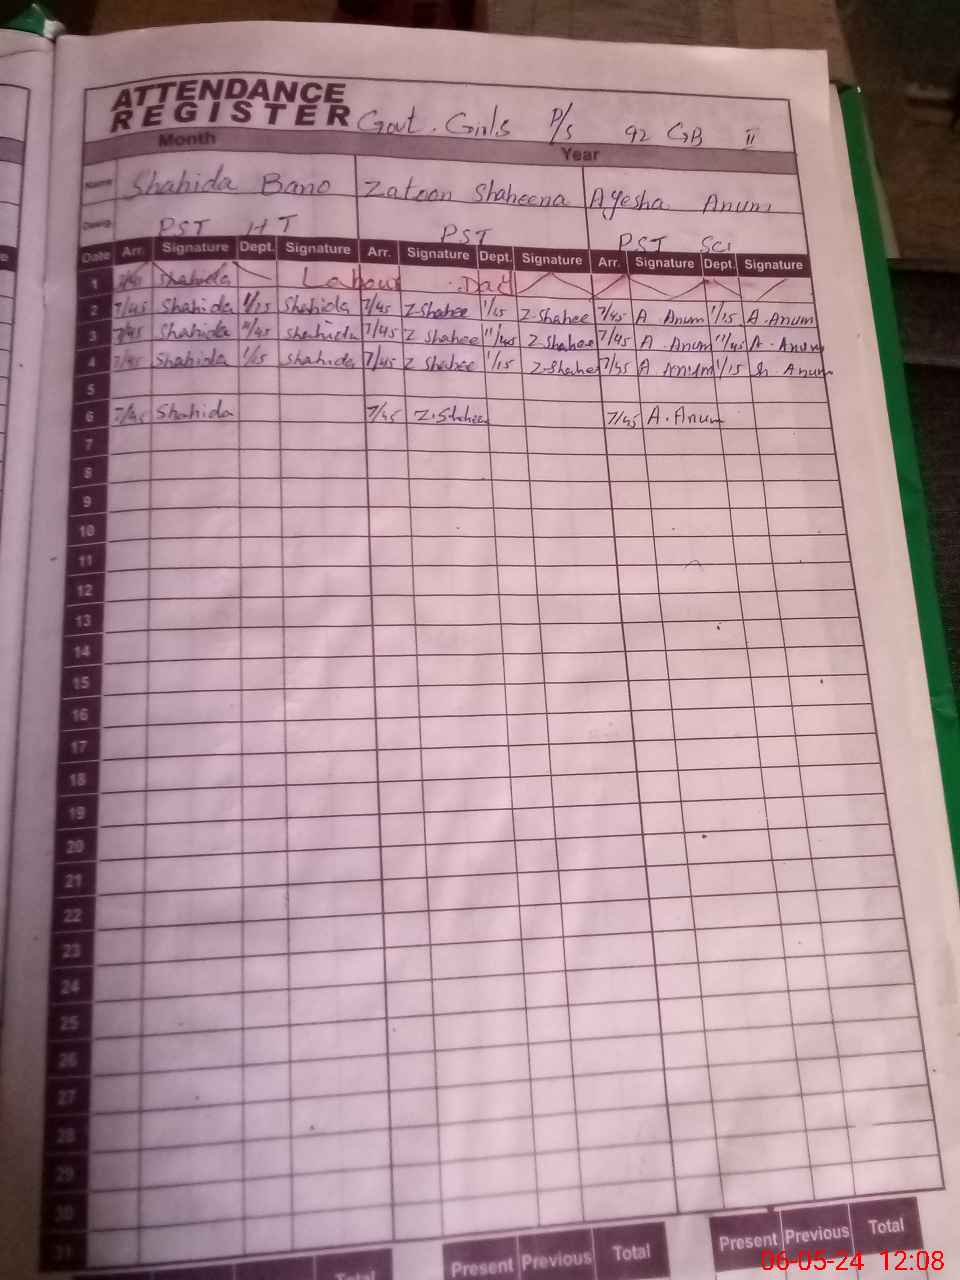 ATTENDANCE
REGISTER Govt. Girls P/S 92 GB II
Month Year
Name Shahida Bano Zatoon Shaheena Ayesha Anum
Desig. PST HT PST PST Sci
Date Arr. Signature Dept. Signature Arr. Signature Dept. Signature Arr. Signature Dept. Signature
1 Shahida Labour Day
2 7/45 Shahida 1/15 Shahida 7/45 Z-Shahee 1/15 Z-Shahee 7/45 A Anum 1/15 A.Anum
3 7/45 Shahida 11/45 Shahida 7/45 Z Shahee 11/45 Z-Shahee 7/45 A. Anum 11/45 A. Anum
4 7/45 Shahida 1/15 Shahida 7/45 Z Shahee 1/15 Z-Shahee 7/45 A Anum 1/15 Sh. Anum
5
6 7/45 Shahida 7/45 Z.Shaheen 7/45 A.Anum
7
8
9
10
11
12
13
14
15
16
17
18
19
20
21
22
23
24
25
26
27
28
29
30
31
Total Present Previous Total Present Previous Total
06-05-24 12:08